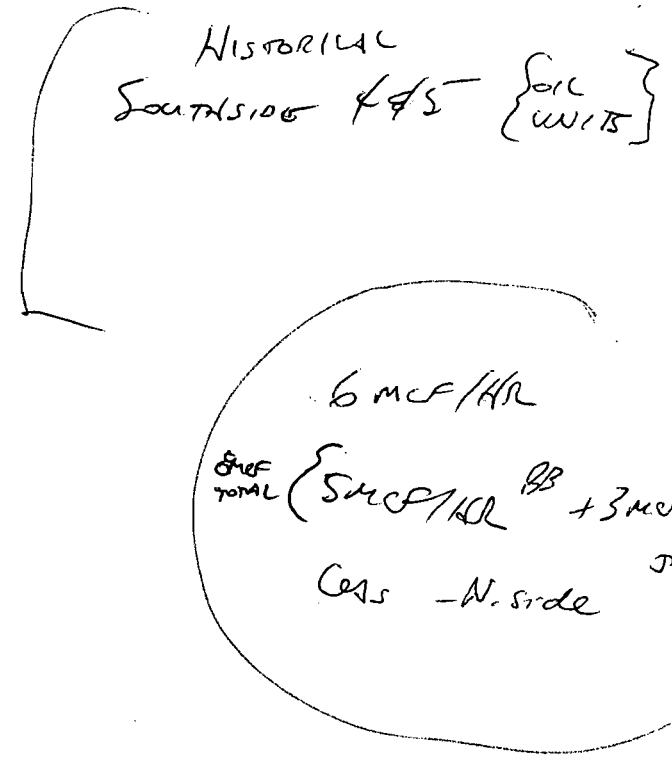 HISTORICAL
SOUTHSIDE 4&5 { SOIL UNITS }
6 MCF/HR
8MCF TOTAL { 5MCF/HR BB + 3 MC
- N. Side